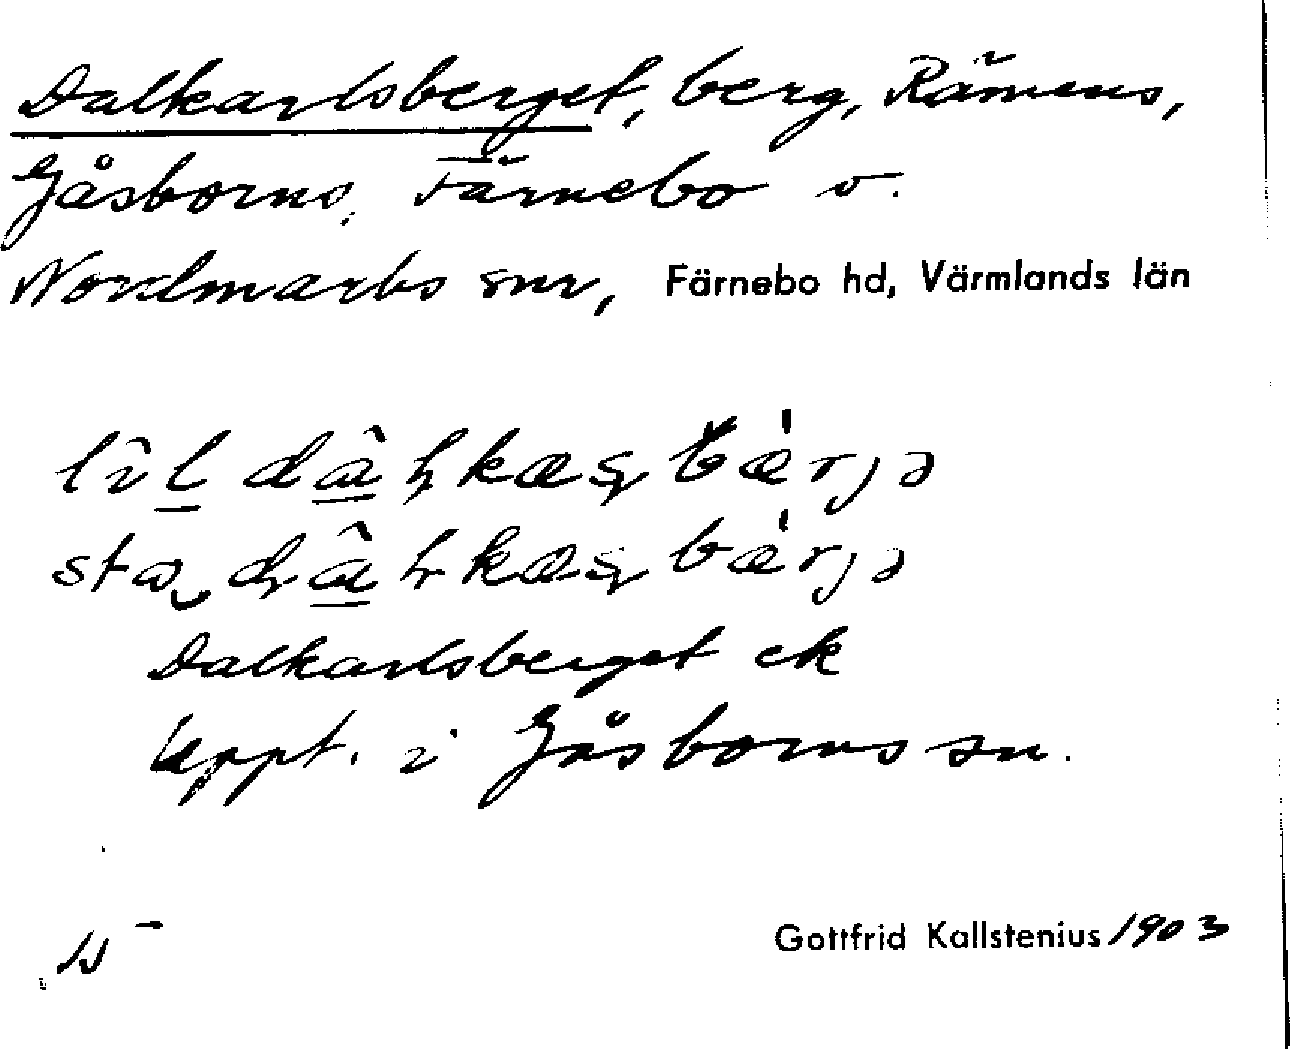 Dalkarlsberget, berg, Rämens,
Gåsborns, Färnebo o.
Nordmarks snr, Färnebo hd, Värmlands län
Dalkarlsberget ek
Uppt. i Gåsborns sn.
Gottfrid Kallstenius 1903